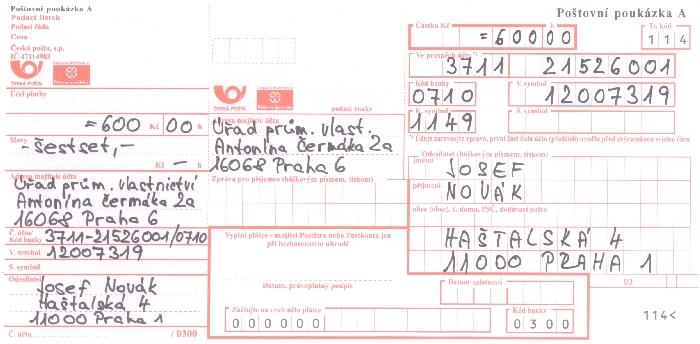 Poštovní poukázka A
Podací lístek
Podací číslo
Cena
Česká pošta, s.p.
IČ 47114983
ČESKÁ POŠTA
Účel platby
=600 Kč 00 h
Slovy
-šestset,-
Kč - h
Adresa majitele účtu
Úřad prům. vlastnictví
Antonína Čermáka 2a
16068 Praha 6
Č. účtu/
Kód banky 3711-21526001/0710
V. symbol 12007319
S. symbol
Odesílatel
Josef Novák
Haštalská 4
11000 Praha 1
Č. účtu / 0300
ČESKÁ POŠTA
podací znaky
Adresa majitele účtu
Úřad prům. vlast.
Antonína Čermáka 2a
16068 Praha 6
Zpráva pro příjemce (hůlkovým písmem, tiskem)
Vyplní plátce - majitel Postžira nebo Postkonta jen
při bezhotovostní úhradě
Datum, právoplatný podpis
Datum splatnosti
Zúčtujte na vrub účtu plátce
000000
Kód banky
0300
Poštovní poukázka A
Částka Kč h
=60000
Tr. kód
114
Ve prospěch účtu *)
3711 21526001
Kód banky
0710
V. symbol
12007319
K. symbol
1149
S. symbol
*) Údaje zarovnejte vpravo, první část čísla účtu (předčíslí) uveďte před zvýrazněnou svislou čáru
Odesílatel (hůlkovým písmem, tiskem)
jméno
JOSEF
příjmení
NOVÁK
ulice (obec), č. domu, PSČ, dodávací pošta
HAŠTALSKÁ 4
11000 PRAHA 1
03
114<